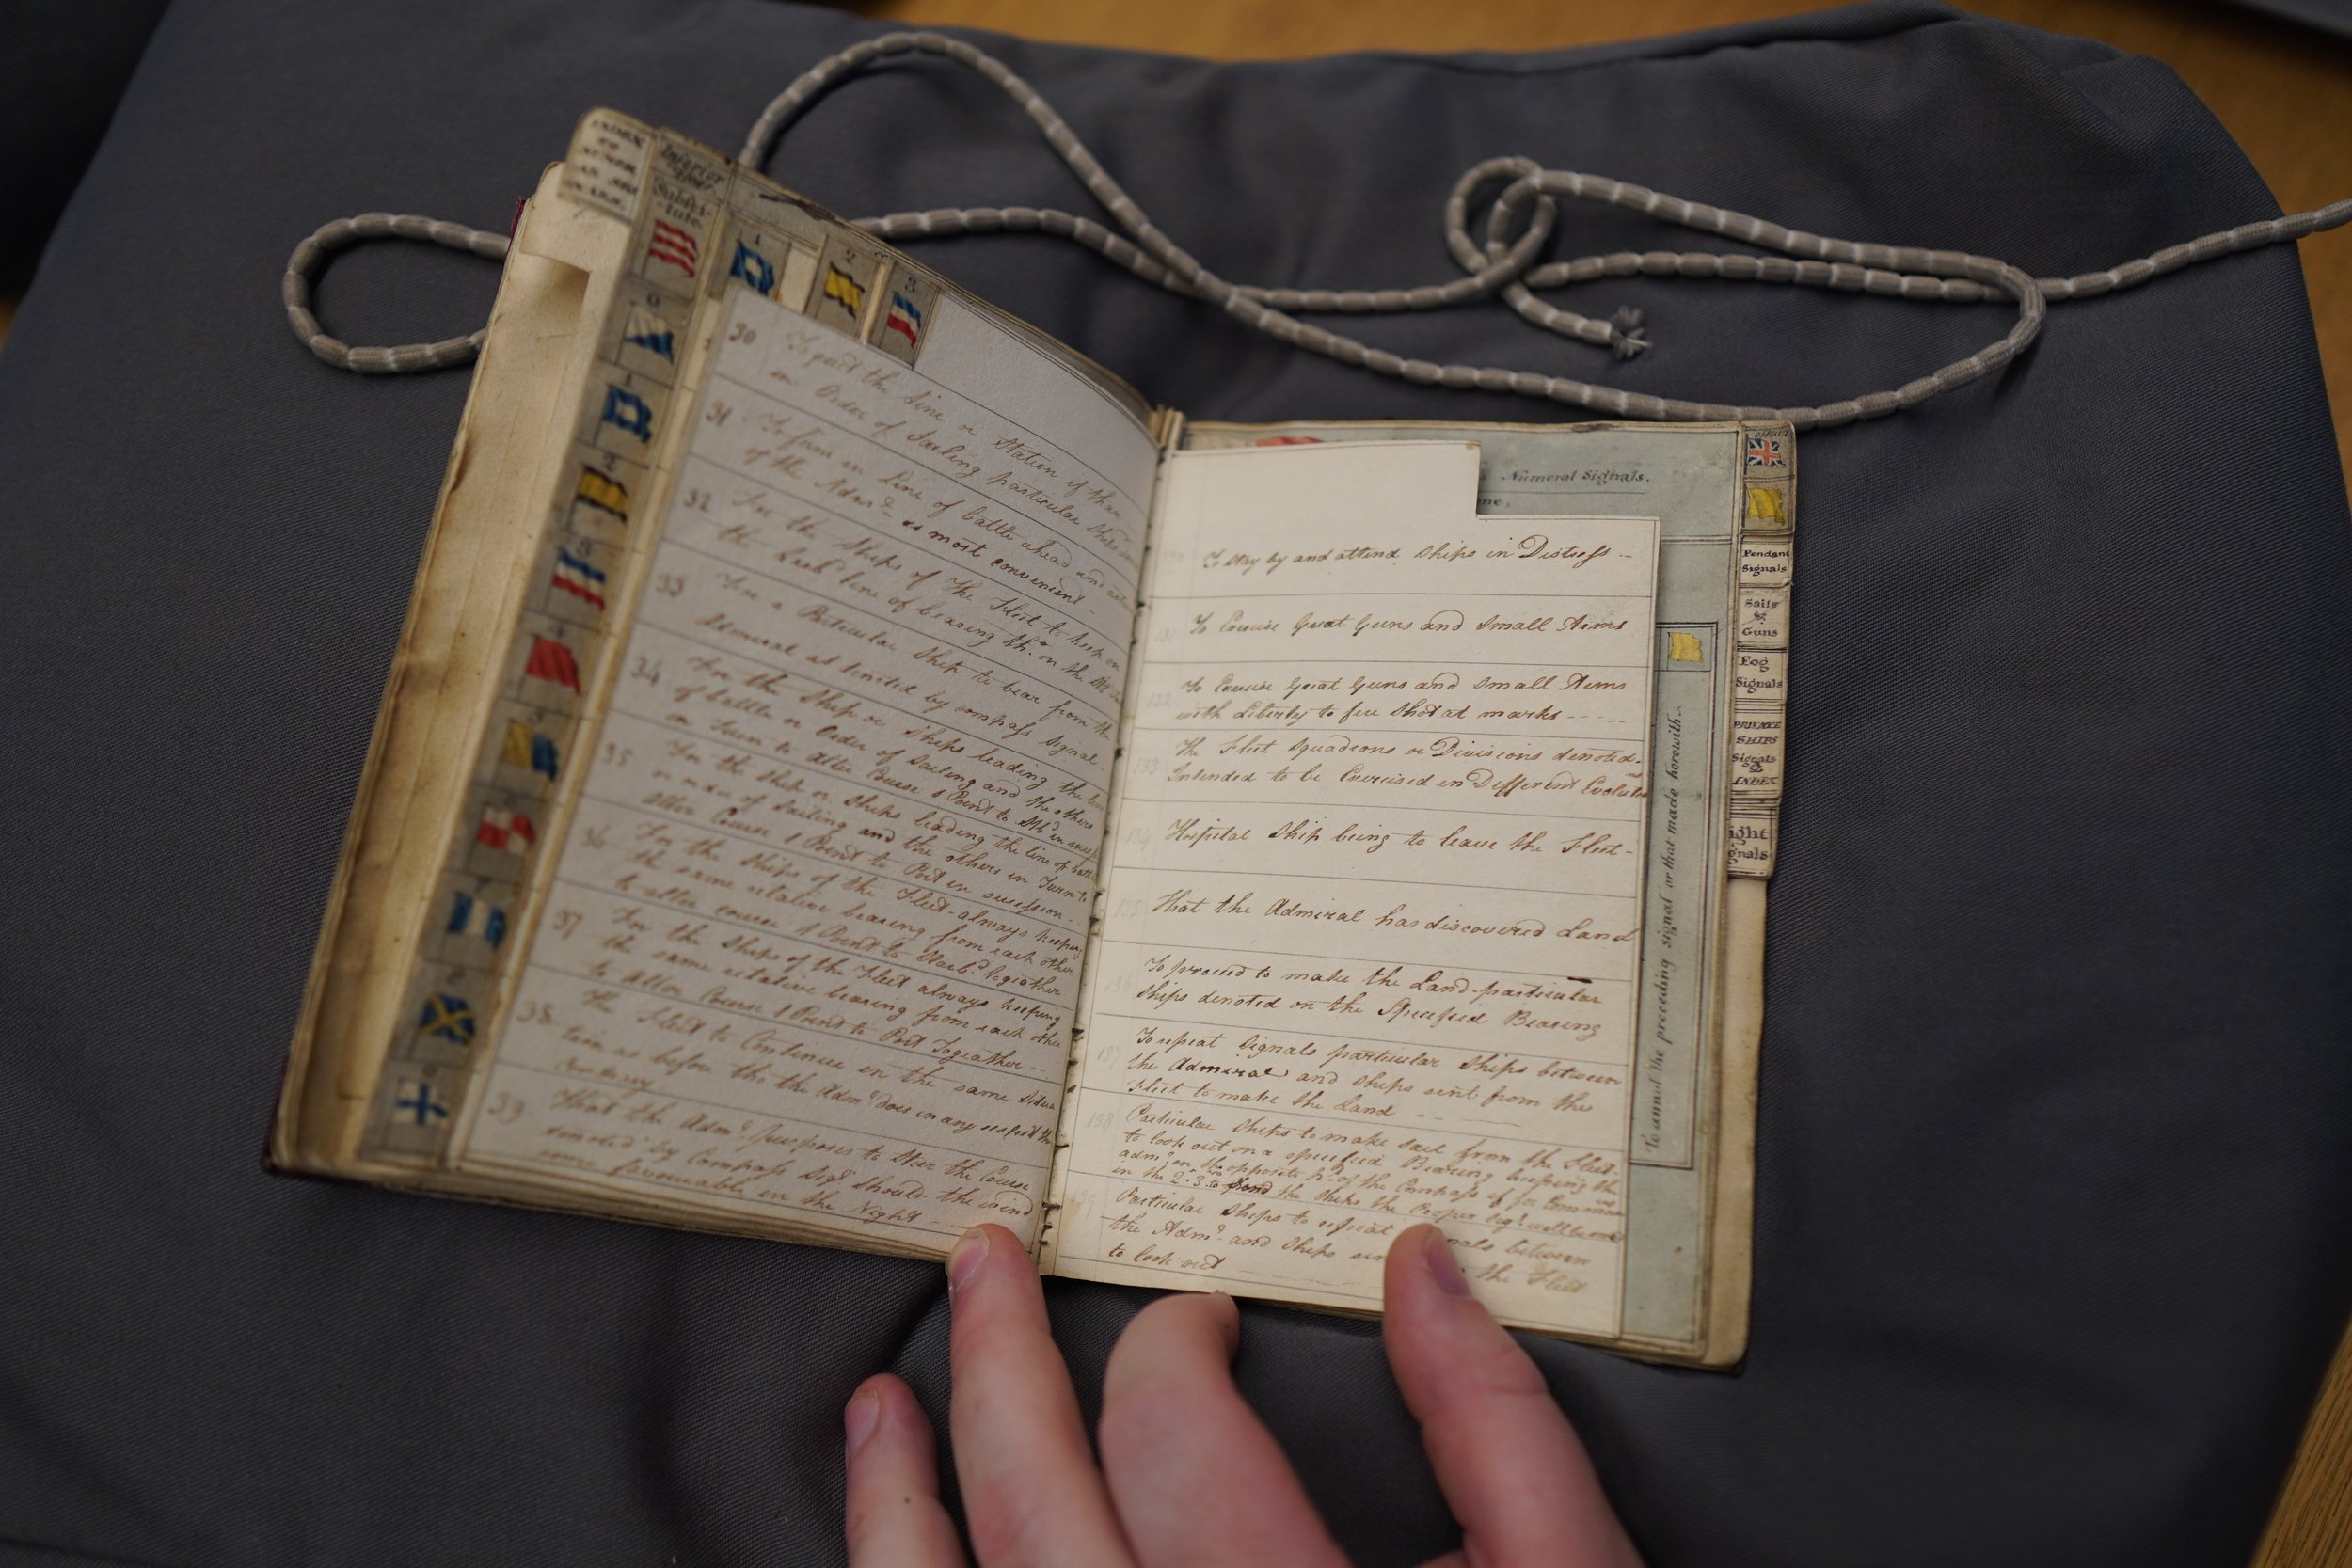 INDEX
Inferior
Substi-
tute
1
2
3
0
1
2
3
4
5
30 To quit the Line or Station if than
in Order of Sailing particular Ships
31 To form in Line of battle ahead and astern
of the Adm.l as most convenient -
32 For the Ships of the Fleet to keep on
the Larb line of bearing th.o on the
33 For a Particular Ship to bear from the
Admiral as denoted by compass Signal -
34 For the Ship or Ships leading the line
of battle or Order of Sailing and the others
in Turn to alter Course 1 Point to Stb.d in
35 For the Ship or Ships leading the line of batt
order of Sailing and the others in Turn to
alter Course 1 Point to Port in succession -
36 For the Ships of the Fleet - always keeping
the same relative bearing from each other
to alter course 1 Point to Starb.d together
37 For the Ships of the Fleet always keeping
the same relative bearing from each other
to Alter Course 1 Point to Port Togeather --
38 The Fleet to Continue in the same
as before tho the Adm.l does in any respect the
Contrary.
39 That the Adm.l purposes to Steer the Course
denoted by Compass Sig.l should the wind
more favourable in the Night -
Numeral Signals.
To stay by and attend Ships in Distress --
131 To Exercise Great Guns and Small Arms
132 To Exercise Great Guns and Small Arms
with Liberty to fire Shot at marks -----
133 The Fleet Squadrons or Divisions denoted -
Intended to be Exercised in Different Evolutions
134 Hospital Ship being to leave the Fleet -
135 That the Admiral has discovered Land
136 To proceed to make the Land - particular
Ships denoted on the Specified Bearing
137 To repeat Signals particular Ships between
the Admiral and Ships sent from the
Fleet to make the Land - -
138 Particular Ships to make sail from the Fleet -
to look out on a specified Bearing keeping the
adm.l on the opposite p.t of the Compass if for
in the 2. 3. to the Ships the Proper Sig.l will be
139 Particular Ships to repeat between
the Adm.l and Ships the Fleet
to look out
To annul the preceding signal or that made herewith.
Pendant
Signals
Sails
&
Guns
Fog
Signals
PRIVATE
SHIPS
Signals
&
INDEX
ight
gnals